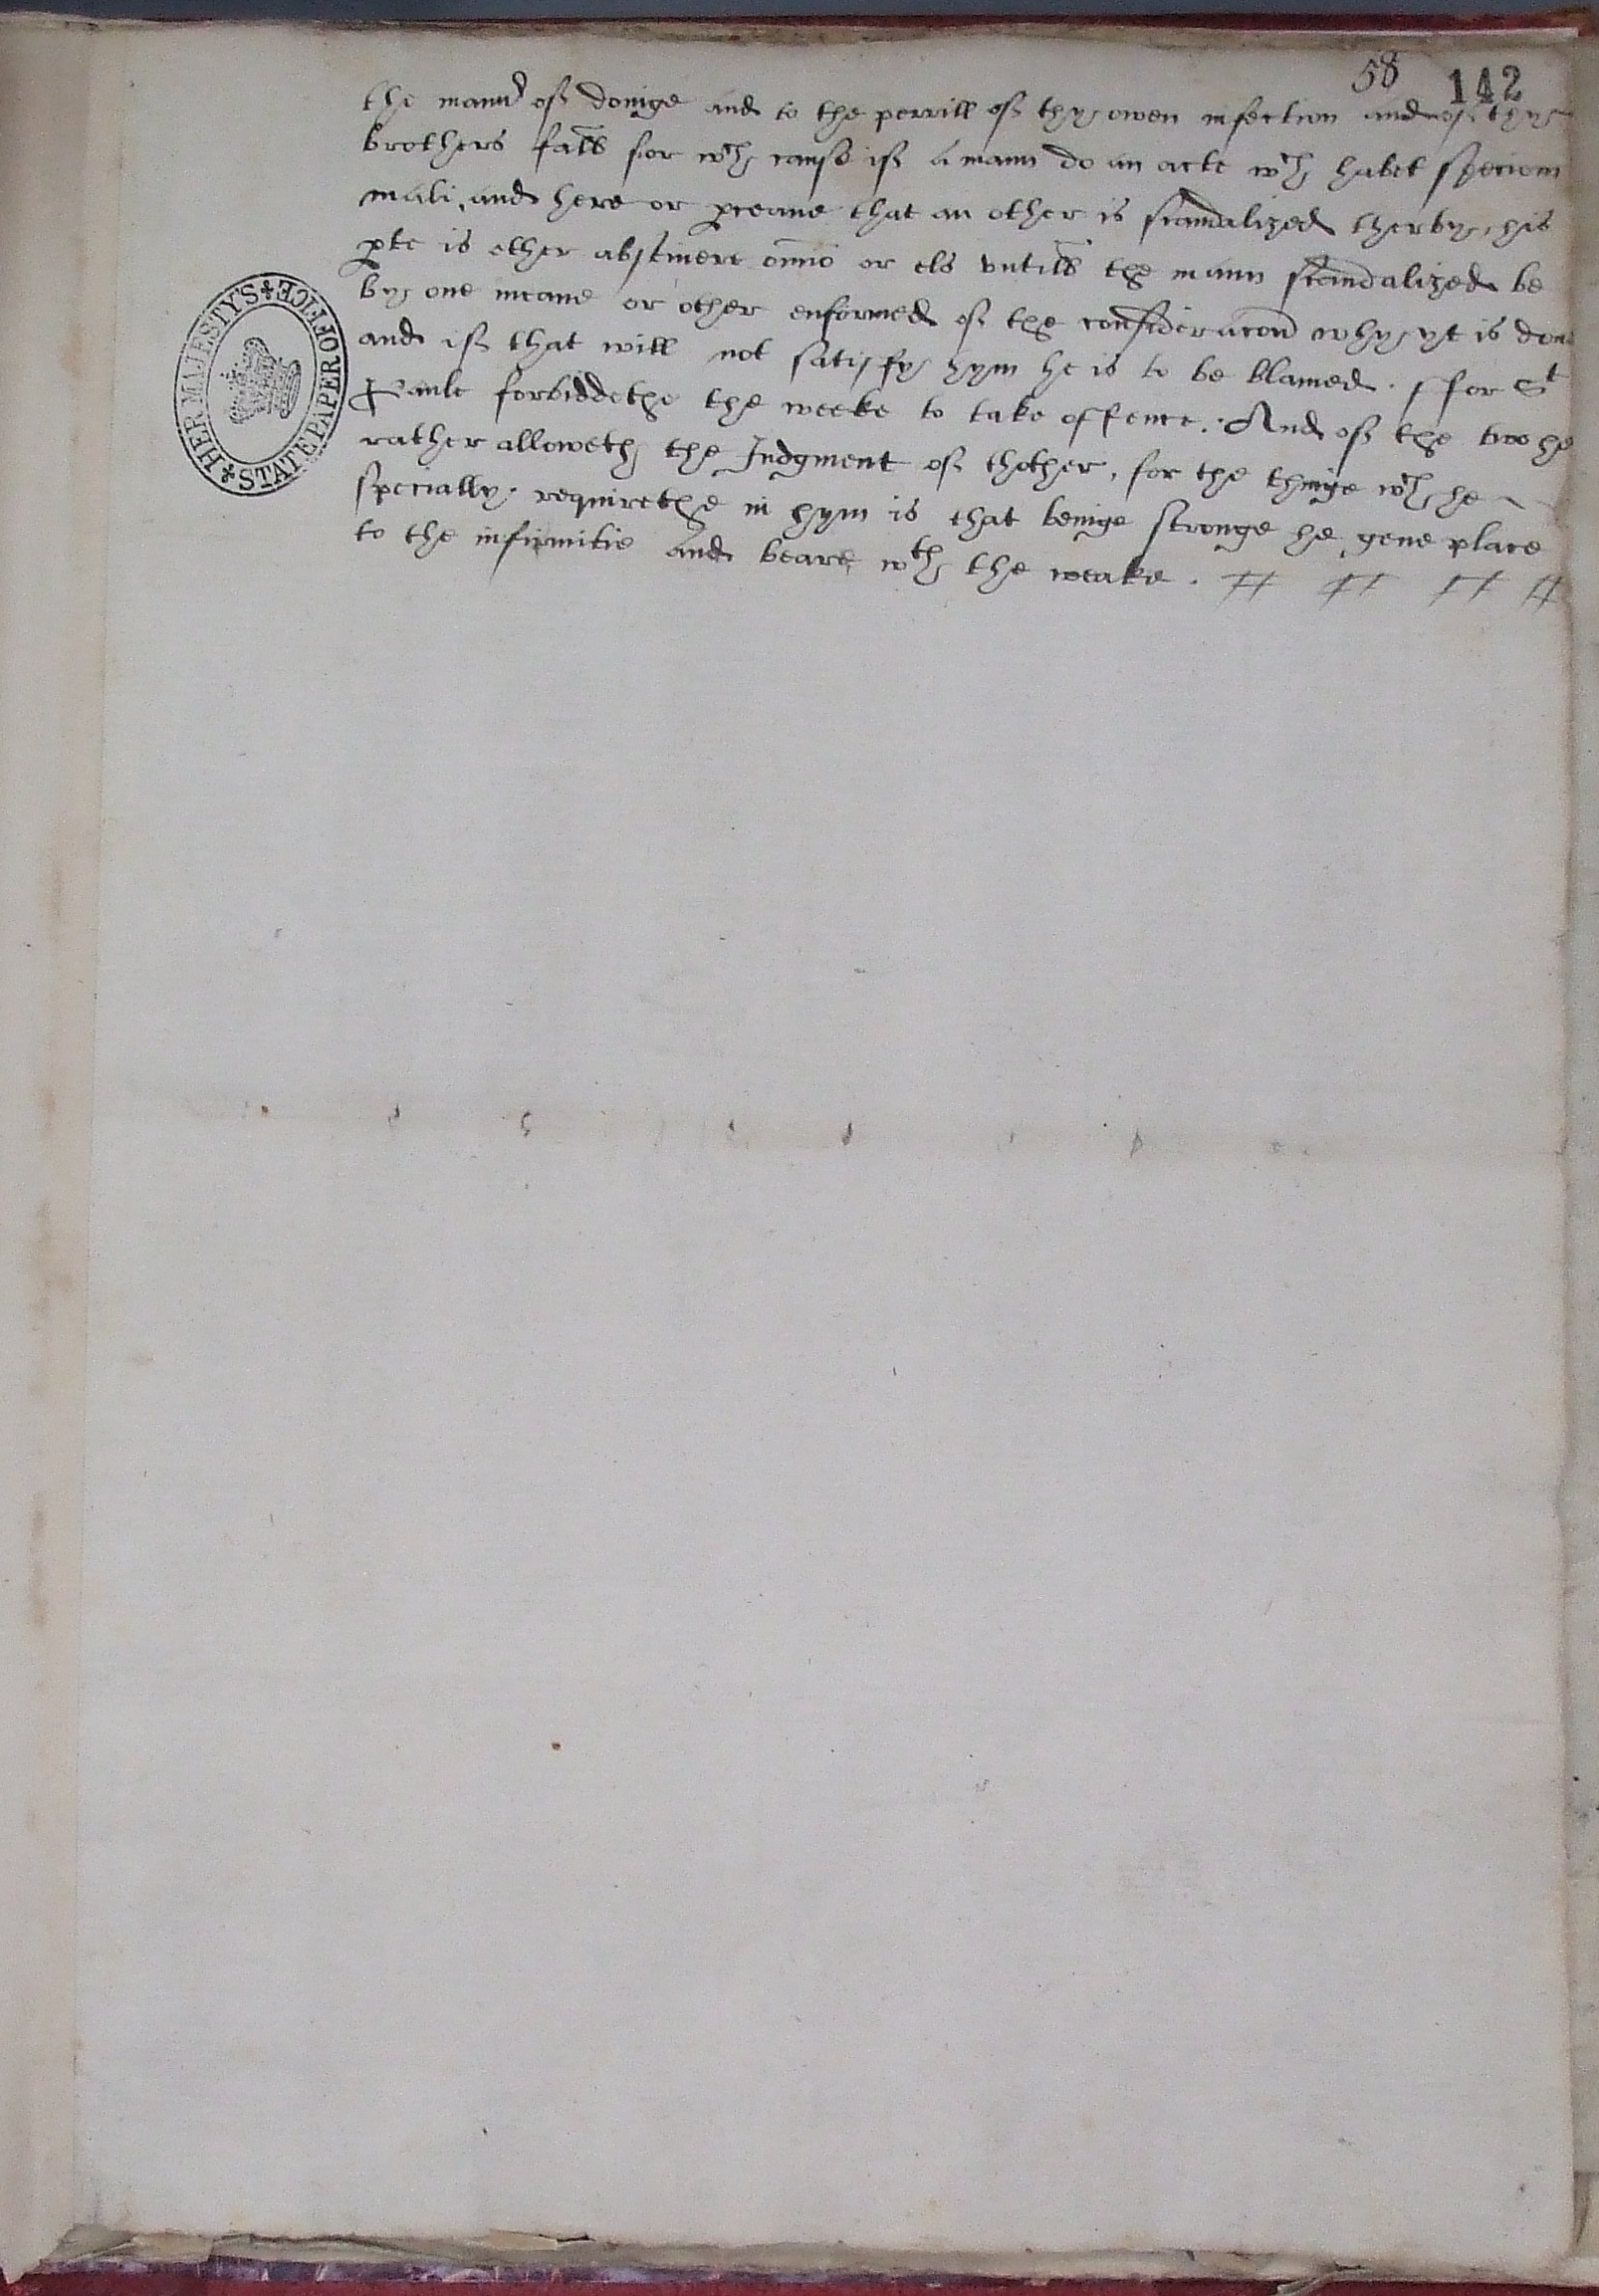 58 142
the mannr of doinge and to the perrill of thy owen infection and of thy
brothers fall for wch cause if a mann do an acte wch habet speciem
mali, and here or pceave that an other is scandalized therby, his
pte is ether abstinere omnio or els vntill the mann scandalized be
by one meane or other enformed of the consideracon why yt is don
and if that will not satisfy hym he is to be blamed. ffor St
Paule forbiddethe the weeke to take offence. And of the two he
rather alloweth the Judgment of thother, for the thinge wch he
specially requirethe in hym is that beinge stronge he geue place
to the infirmitie and beare wth the weake.
HER MAJESTY'S STATE PAPER OFFICE